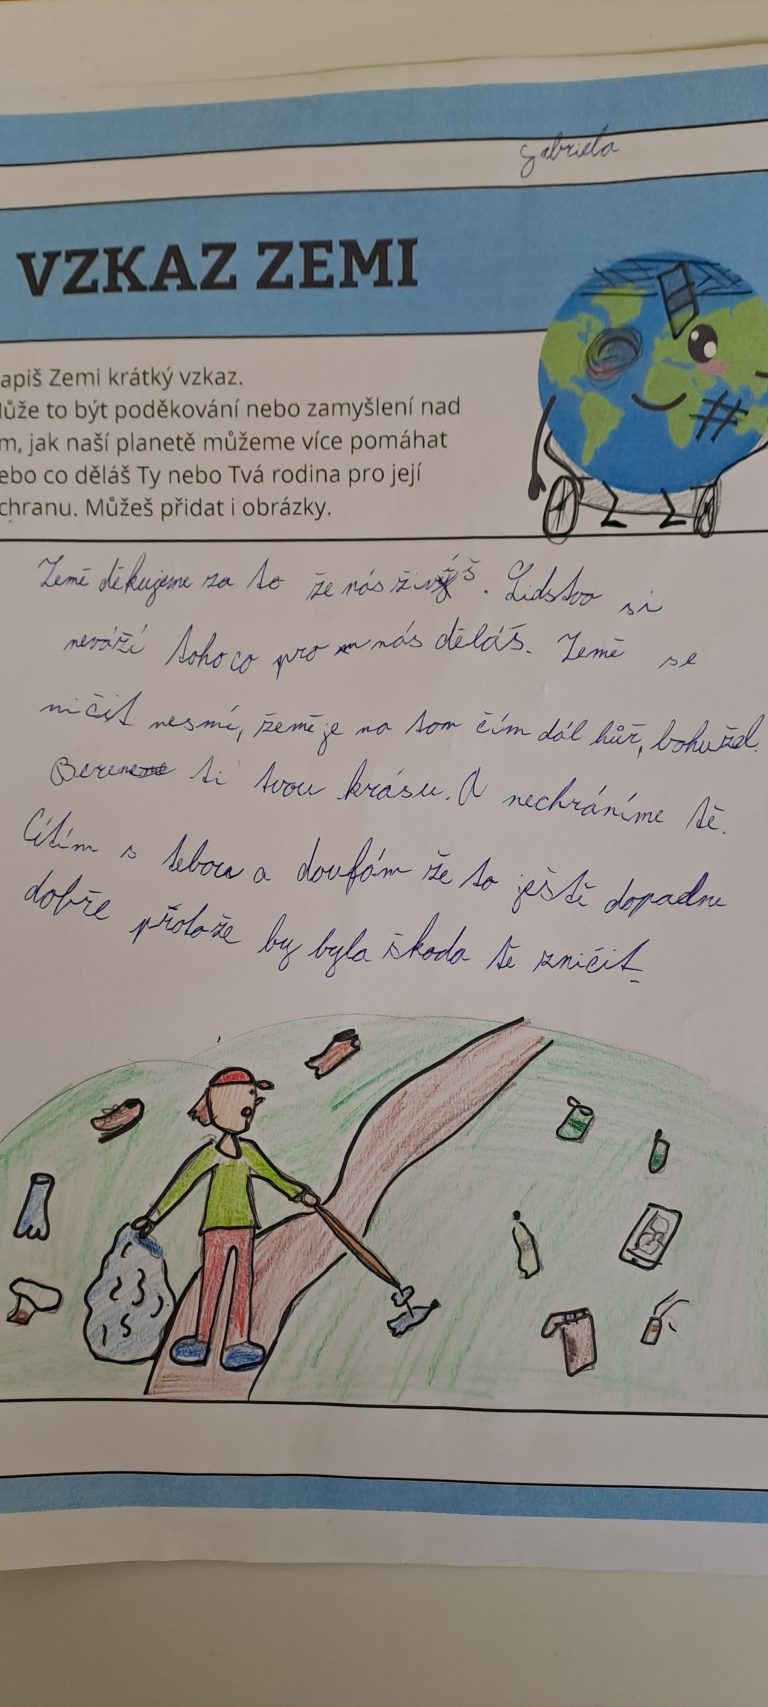 Gabriela
VZKAZ ZEMI
apiš Zemi krátký vzkaz.
ůže to být poděkování nebo zamyšlení nad
m, jak naší planetě můžeme více pomáhat
ebo co děláš Ty nebo Tvá rodina pro její
chranu. Můžeš přidat i obrázky.
Země děkujeme za to že nás živíš. Lidstvo si
neváží toho co pro nás děláš. Země se
ničit nesmí, žeměje na tom čím dál hůř, bohužel.
Bereme ti tvou krásu. A nechráníme tě.
Cítím s tebou a doufám že to ještě dopadne
dobře protože by byla škoda tě zničit.